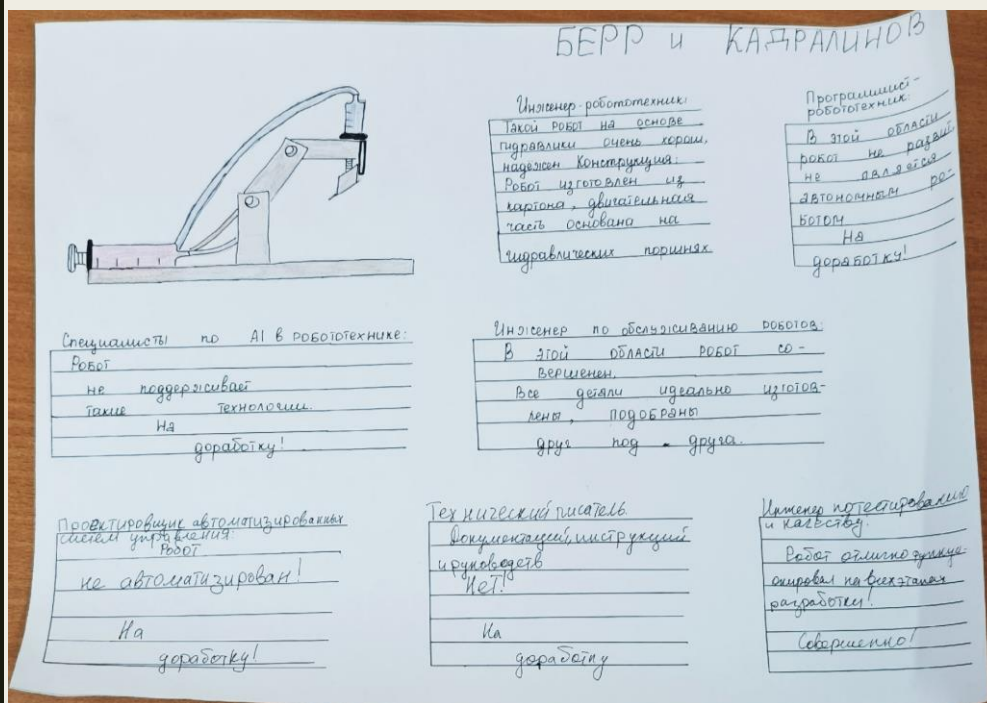 БЕРР и КАДРАЛИНОВ
Инженер-робототехник:
Такой робот на основе
гидравлики очень хорош,
надежен Конструкция:
Робот изготовлен из
картона, двигательная
часть основана на
гидравлических поршнях
Программист-
робототехник:
В этой области
робот не развит
не является
автономным ро-
ботом
На
доработку!
Специалисты по AI в робототехнике:
Робот
не поддерживает
такие технологии.
На
доработку!
Инженер по обслуживанию роботов:
В этой области робот со-
вершенен.
Все детали идеально изготов-
лены, подобраны
друг под - друга.
Проектировщик автоматизированных
систем управления:
Робот
не автоматизирован!
На
доработку!
Технический писатель
Документаций, инструкций
и руководств
Нет!
На
доработку
Инженер по тестированию
и качеству.
Робот отлично функци-
онировал на всех этапах
разработки!
Совершенно!